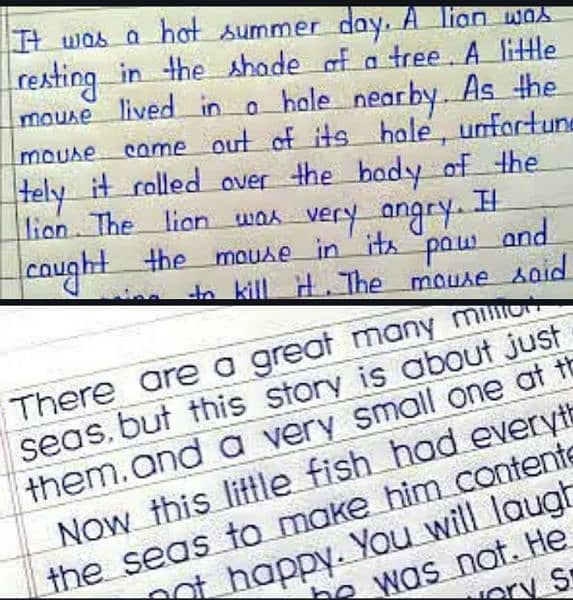 It was a hot summer day. A lion was
resting in the shade of a tree. A little
mouse lived in a hole nearby. As the
mouse came out of its hole, unfortuna
tely it rolled over the body of the
lion. The lion was very angry. It
caught the mouse in its paw and
to kill it. The mouse said
There are a great many million
seas, but this story is about just
them, and a very small one at th
Now this little fish had everyth
the seas to make him contente
not happy. You will laugh
he was not. He
very s